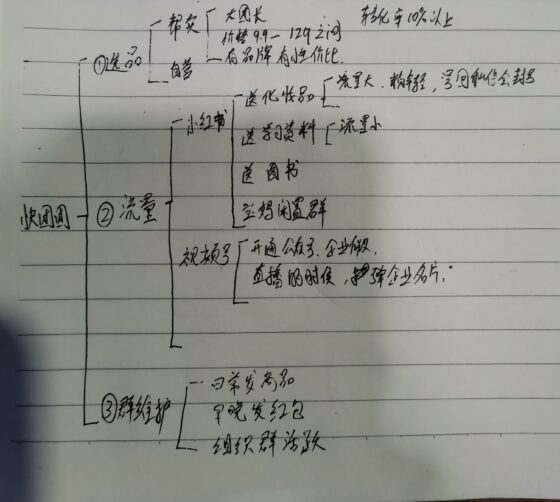 帮卖 大团长 转化率10%以上
价格9.9-129之间
①选品 有品牌有性价比
自营
小红书 送化妆品 流量大、粉年轻,号间私信会封号
送学习资料 流量小
送图书
宝妈闲置群
快团团 ②流量
视频号 开通公众号、企业微
直播的时候,弹企业名片.
③群维护 日常发商品
早晚发红包
组织群活跃